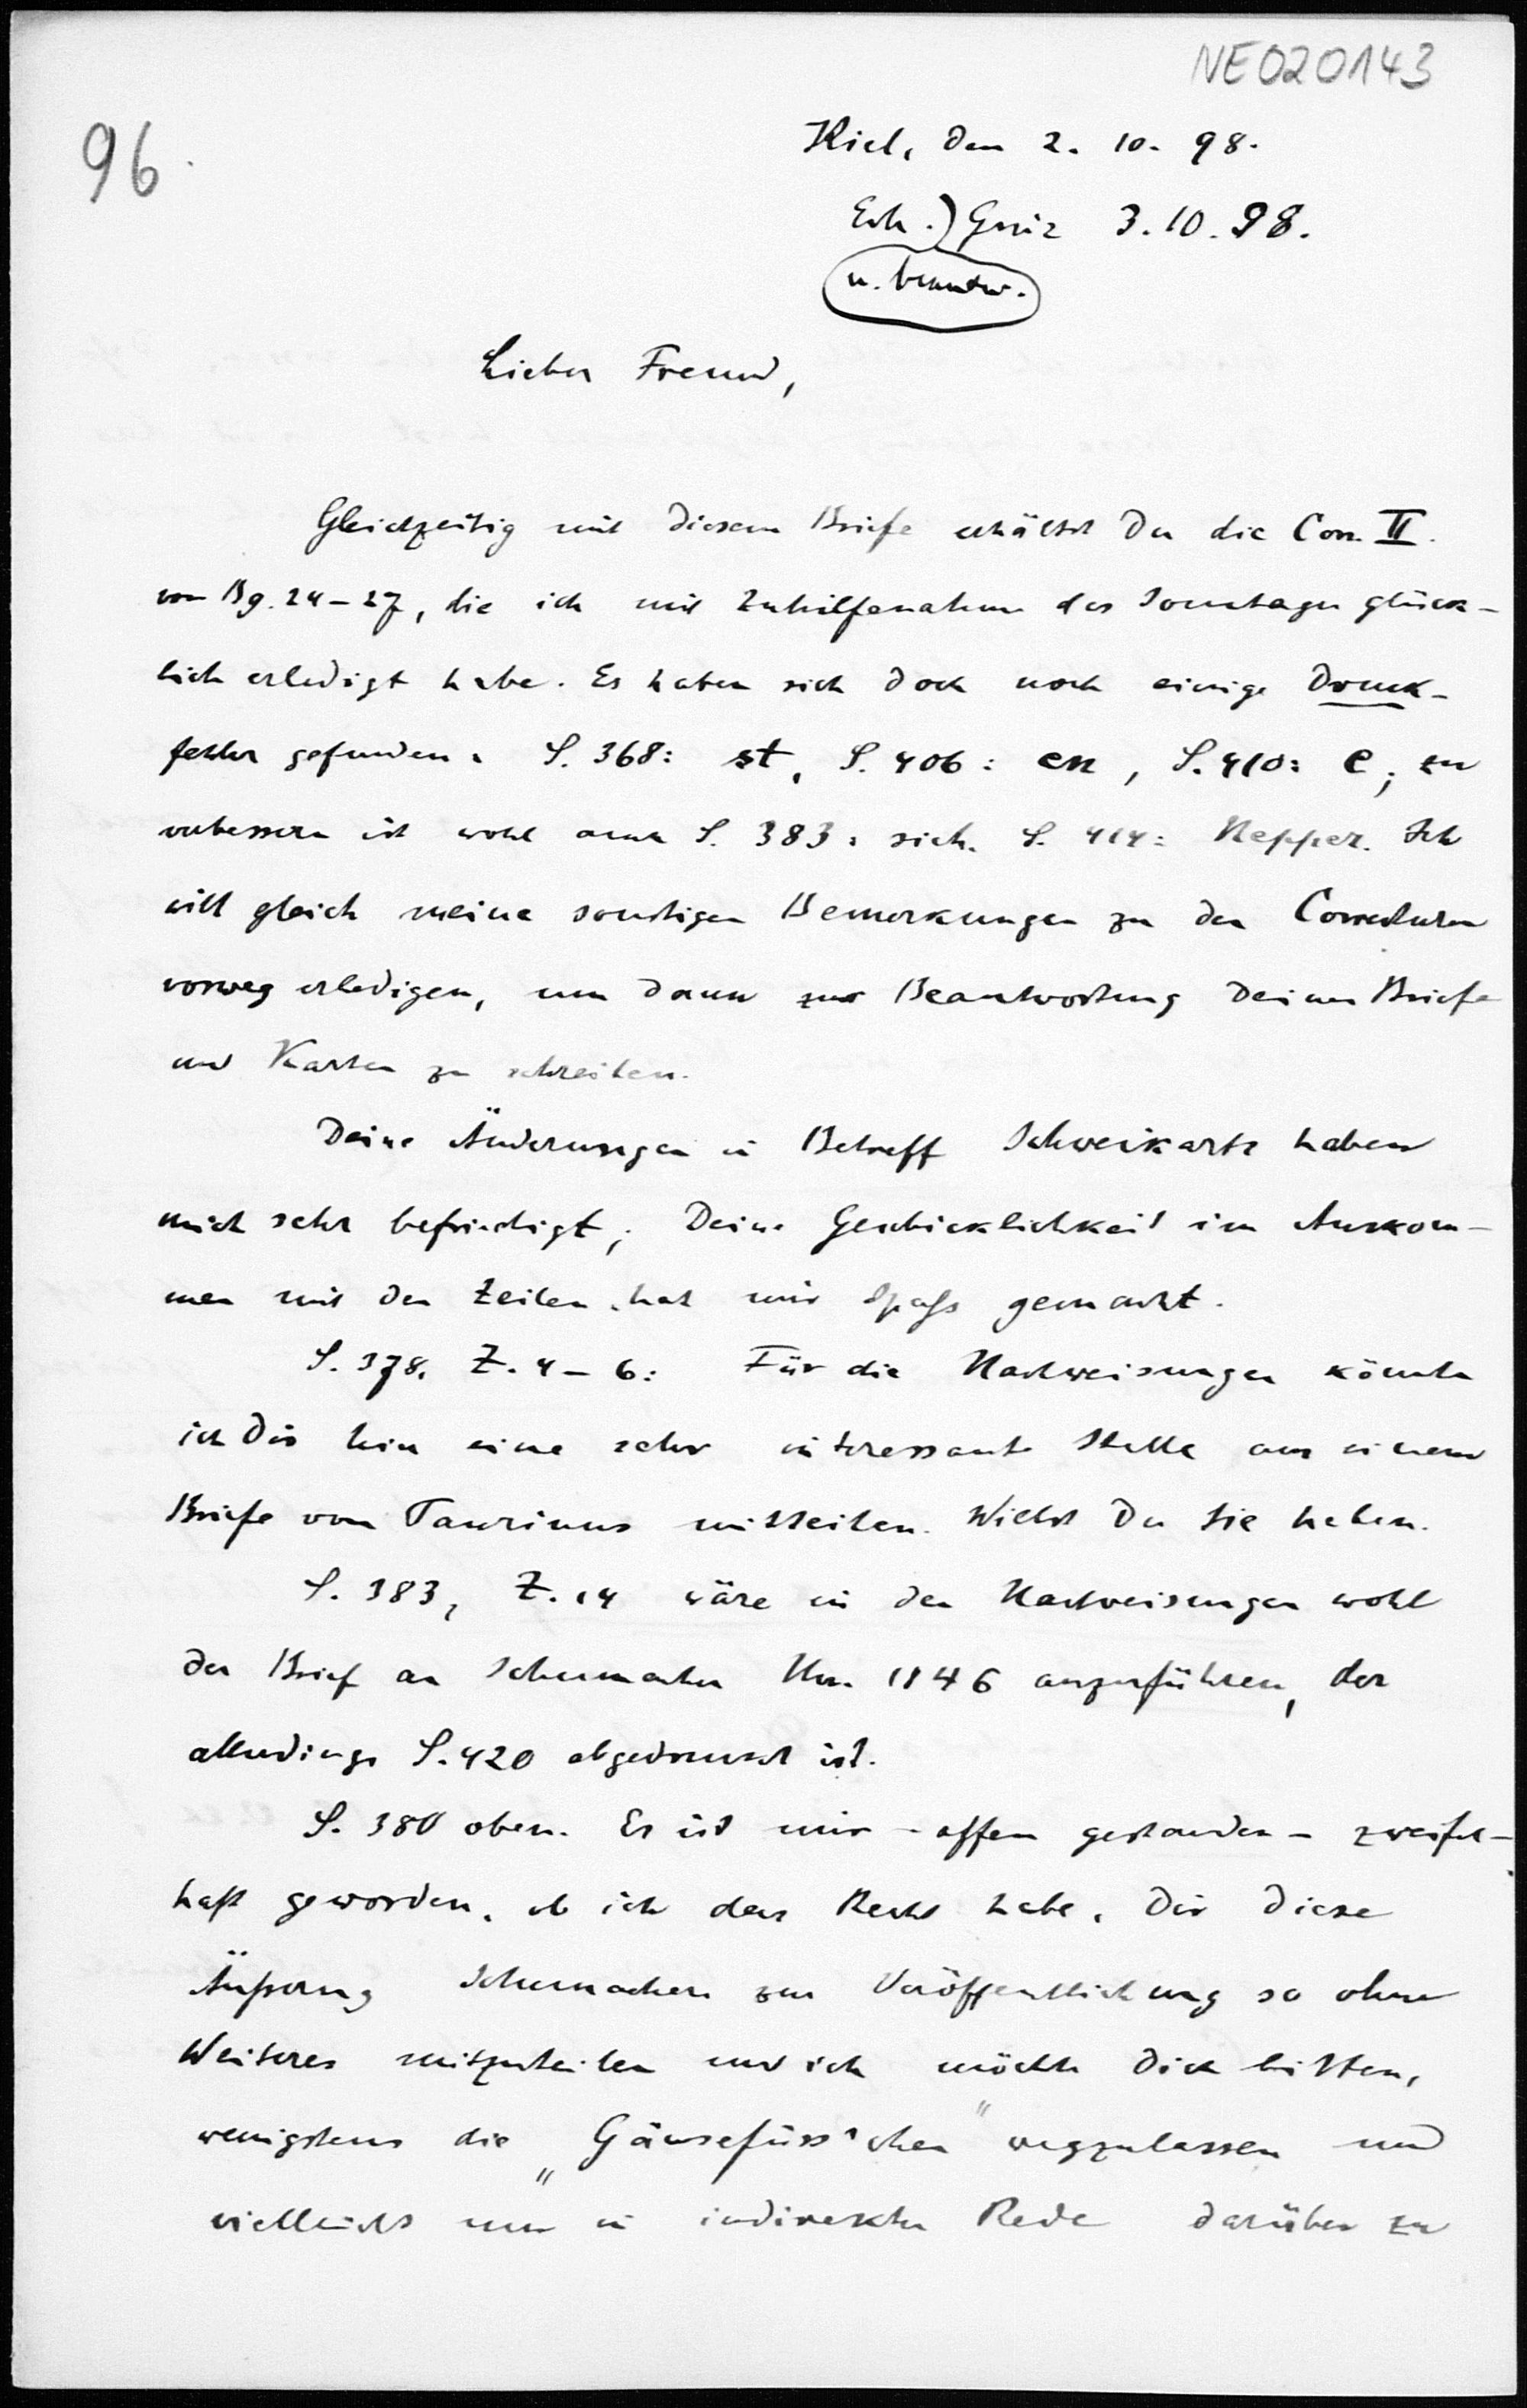 NE020143
96.
Kiel, den 2. 10. 98.
Erh.) Greiz 3.10.98.
u. beantw.
Lieber Freund,
Gleichzeitig mit diesem Briefe erhältst Du die Corr. II.
von Bg. 24-27, die ich mit Zuhilfenahme des Sonntages glück-
lich erledigt habe. Es haben sich doch noch einige Druck-
fehler gefunden. S. 368: st, S. 406: en, S. 410: e; zu
verbessern ist wohl auch S. 383: sich. S. 414: Nepper. Ich
will gleich meine sonstigen Bemerkungen zu den Correkturen
vorweg erledigen, um dann zur Beantwortung Deiner Briefe
und Karten zu schreiten.
Deine Änderungen in Betreff Schweikarts haben
mich sehr befriedigt; Deine Geschicklichkeit im Auskom-
men mit den Zeilen hat mir Spaß gemacht.
S. 378. Z. 4-6: Für die Nachweisungen könnte
ich Dir hier eine sehr interessante Stelle aus einem
Briefe von Taurinus mitteilen. Willst Du sie haben.
S. 383, Z. 14 wäre in den Nachweisungen wohl
der Brief an Schumacher Nr. 1146 anzuführen, der
allerdings S. 420 abgedruckt ist.
S. 380 oben. Es ist mir - offen gestanden - zweifel-
haft geworden, ob ich das Recht habe, Dir diese
Äußerung Schumachers zur Veröffentlichung so ohne
Weiteres mitzuteilen und ich möchte Dich bitten,
wenigstens die „Gänsefüss'chen" wegzulassen und
vielleicht nur in indirekter Rede darüber zu